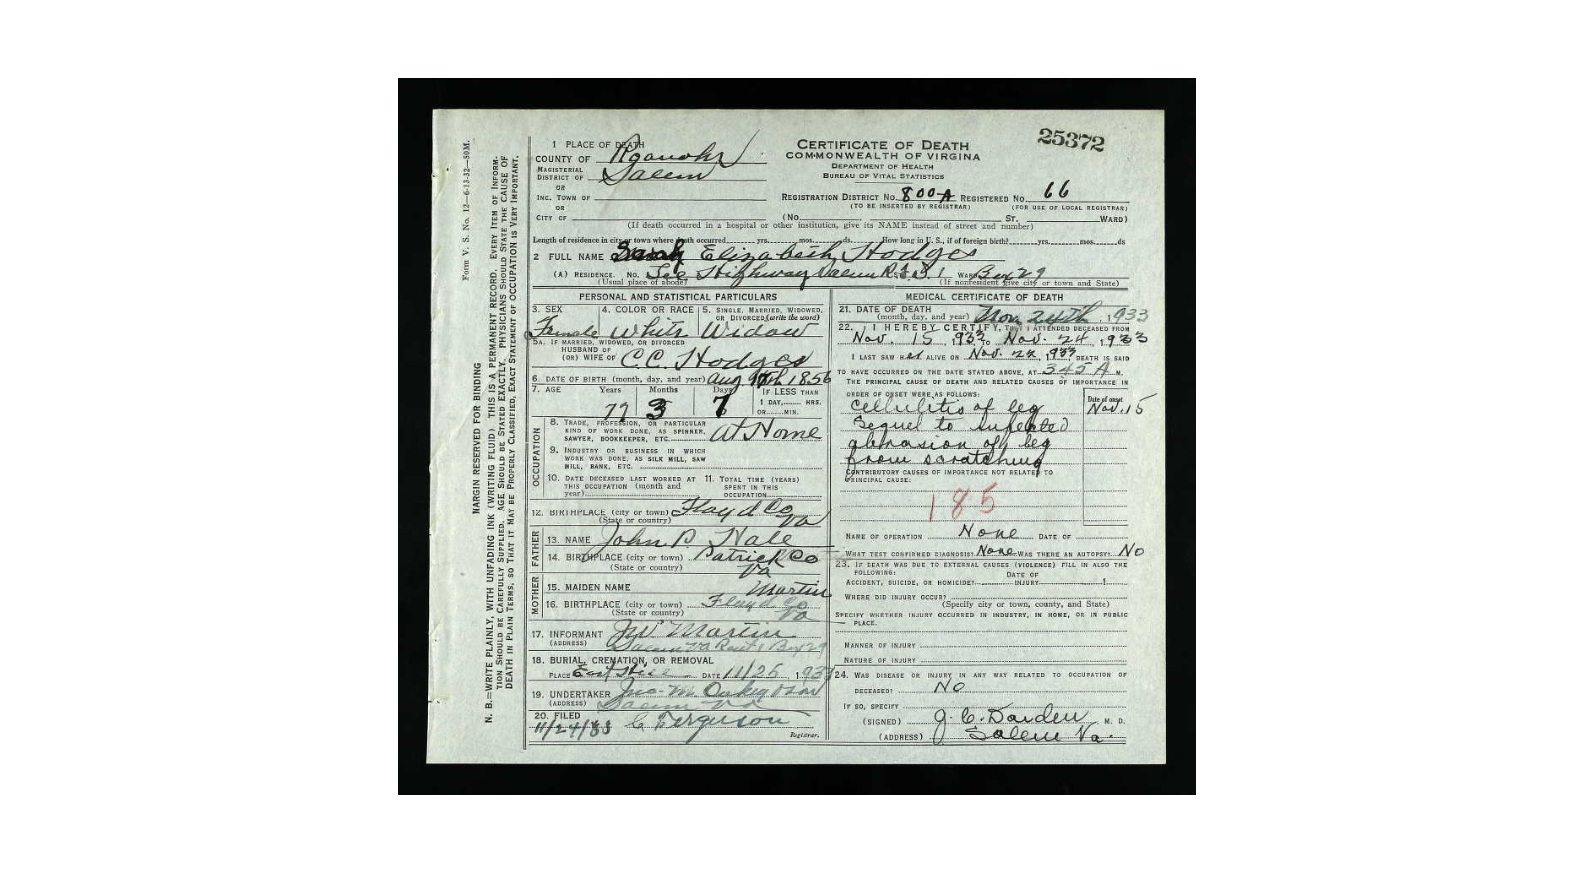 25372
1 PLACE OF DEATH
COUNTY OF Roanoke
MAGISTERIAL DISTRICT OF Salem
OR
INC. TOWN OF
OR
CITY OF
CERTIFICATE OF DEATH
COMMONWEALTH OF VIRGINIA
DEPARTMENT OF HEALTH
BUREAU OF VITAL STATISTICS
REGISTRATION DISTRICT NO. 800-A REGISTERED NO. 66
(TO BE INSERTED BY REGISTRAR) (FOR USE OF LOCAL REGISTRAR)
(No. ST. WARD)
(If death occurred in a hospital or other institution, give its NAME instead of street and number)
Length of residence in city or town where death occurred yrs. mos. ds. How long in U. S., if of foreign birth? yrs. mos. ds
2 FULL NAME Sarah Elizabeth Hodges
(A) RESIDENCE. No. Lee Highway Salem R.F.D. 1 WARD Box 29
(Usual place of abode) (If nonresident give city or town and State)
PERSONAL AND STATISTICAL PARTICULARS
3. SEX Female
4. COLOR OR RACE White
5. SINGLE, MARRIED, WIDOWED, OR DIVORCED (write the word) Widow
5A. IF MARRIED, WIDOWED, OR DIVORCED
HUSBAND OF
(OR) WIFE OF C.C. Hodges
6. DATE OF BIRTH (month, day, and year) Aug 17th 1856
7. AGE Years Months Days IF LESS THAN
1 DAY, HRS.
OR MIN.
77 3 7
OCCUPATION
8. TRADE, PROFESSION, OR PARTICULAR
KIND OF WORK DONE, AS SPINNER,
SAWYER, BOOKKEEPER, ETC. At Home
9. INDUSTRY OR BUSINESS IN WHICH
WORK WAS DONE, AS SILK MILL, SAW
MILL, BANK, ETC.
10. DATE DECEASED LAST WORKED AT
THIS OCCUPATION (month and
year)
11. TOTAL TIME (YEARS)
SPENT IN THIS
OCCUPATION
12. BIRTHPLACE (city or town) Floyd Co
(State or country) Va
FATHER
13. NAME John P Hale
14. BIRTHPLACE (city or town) Patrick Co
(State or country) Va
MOTHER
15. MAIDEN NAME Martin
16. BIRTHPLACE (city or town) Floyd Co
(State or country) Va
17. INFORMANT Martin
(ADDRESS) Salem Va Rout 1 Box 29
18. BURIAL, CREMATION, OR REMOVAL
PLACE East Hill DATE 11/25 1933
19. UNDERTAKER Jno. M. Oakey
(ADDRESS) Salem Va
20. FILED
11/24/33 Ferguson
Registrar.
MEDICAL CERTIFICATE OF DEATH
21. DATE OF DEATH
(month, day, and year) Nov 24th, 1933
22. I HEREBY CERTIFY, THAT I ATTENDED DECEASED FROM
Nov. 15, 1933 TO Nov. 24, 1933
I LAST SAW HER ALIVE ON Nov. 22, 1933 DEATH IS SAID
TO HAVE OCCURRED ON THE DATE STATED ABOVE, AT 545 A M.
THE PRINCIPAL CAUSE OF DEATH AND RELATED CAUSES OF IMPORTANCE IN
ORDER OF ONSET WERE AS FOLLOWS:
Date of onset
Cellulitis of leg Nov. 15
sequel to infected
abrasion of leg
from scratching
CONTRIBUTORY CAUSES OF IMPORTANCE NOT RELATED TO
PRINCIPAL CAUSE:
185
NAME OF OPERATION None DATE OF
WHAT TEST CONFIRMED DIAGNOSIS? None WAS THERE AN AUTOPSY? No
23. IF DEATH WAS DUE TO EXTERNAL CAUSES (VIOLENCE) FILL IN ALSO THE
FOLLOWING:
ACCIDENT, SUICIDE, OR HOMICIDE? DATE OF INJURY 1
WHERE DID INJURY OCCUR?
(Specify city or town, county, and State)
SPECIFY WHETHER INJURY OCCURRED IN INDUSTRY, IN HOME, OR IN PUBLIC
PLACE.
MANNER OF INJURY
NATURE OF INJURY
24. WAS DISEASE OR INJURY IN ANY WAY RELATED TO OCCUPATION OF
DECEASED? No
IF SO, SPECIFY
(SIGNED) J. C. Darden M. D.
(ADDRESS) Salem Va.
Form V. S. No. 12—6-13-32—50M.
MARGIN RESERVED FOR BINDING
N. B.—WRITE PLAINLY, WITH UNFADING INK (WRITING FLUID) THIS IS A PERMANENT RECORD. EVERY ITEM OF INFORMA-
TION SHOULD BE CAREFULLY SUPPLIED. AGE SHOULD BE STATED EXACTLY. PHYSICIANS SHOULD STATE THE CAUSE OF
DEATH IN PLAIN TERMS, SO THAT IT MAY BE PROPERLY CLASSIFIED, EXACT STATEMENT OF OCCUPATION IS VERY IMPORTANT.